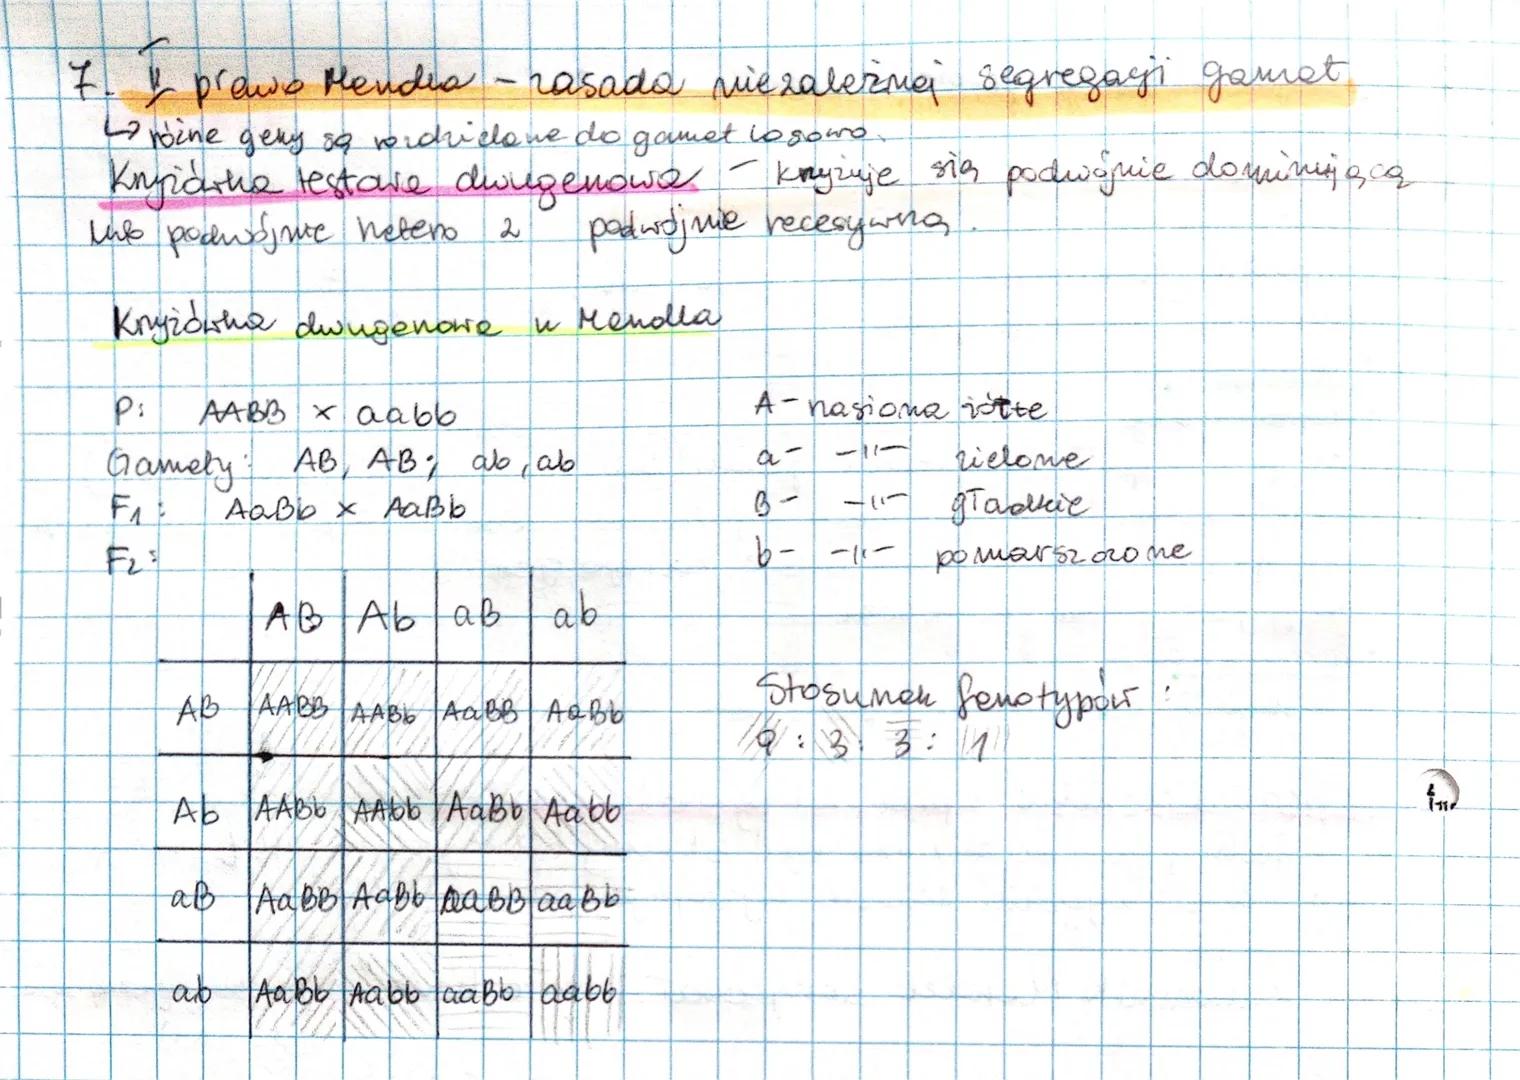 7. II prawo Mendla – zasada niezależnej segregacji gamet
↳ różne geny są rozdzielane do gamet losowo.
Krzyżówka testowa dwugenowa – krzyżuje się podwójnie dominującą
lub podwójnie hetero z podwójnie recesywną.
Krzyżówka dwugenowa u Mendla
P: AABB × aabb
Gamety: AB, AB; ab, ab
F1: AaBb × AaBb
F2:
A – nasiona żółte
a – –||– zielone
B – –||– gładkie
b – –||– pomarszczone
AB Ab aB ab
AB AABB AABb AaBB AaBb
Ab AABb AAbb AaBb Aabb
aB AaBB AaBb aaBB aaBb
ab AaBb Aabb aaBb aabb
Stosunek fenotypów:
9 : 3 : 3 : 1